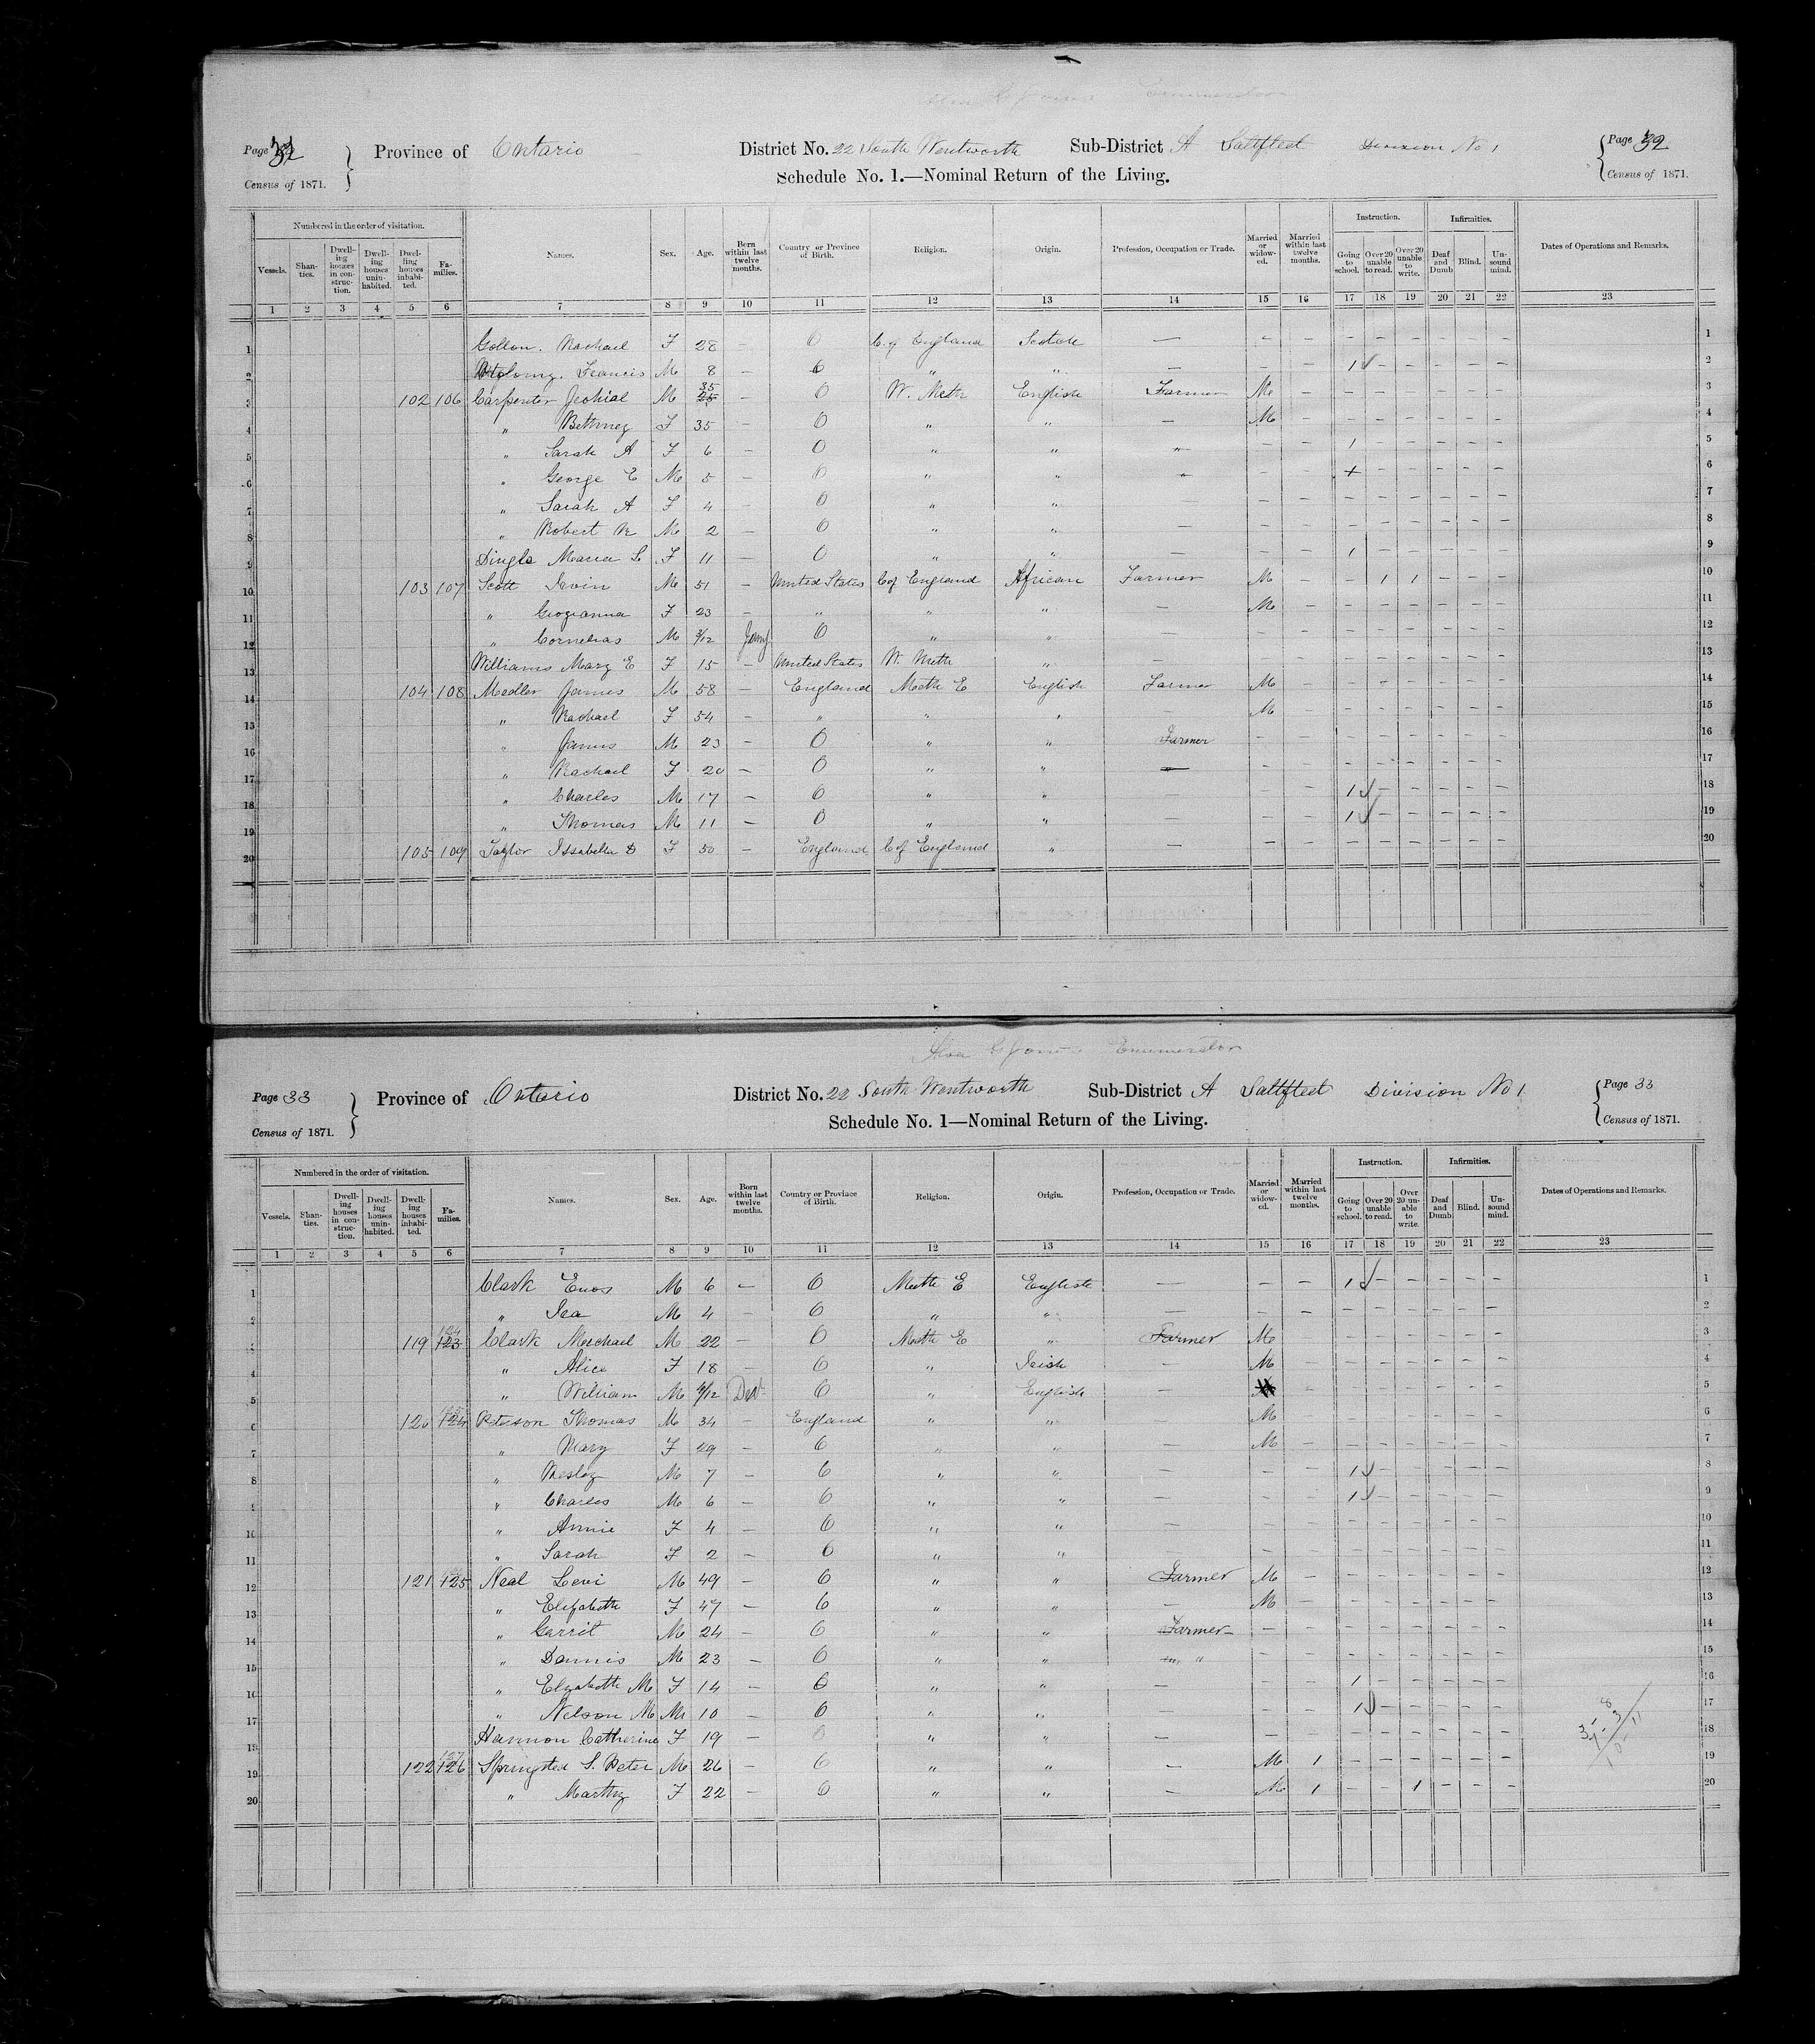 Page 32 Province of Ontario District No. 22 South Wentworth Sub-District A Saltfleet Division No 1 Page 32
Census of 1871. Schedule No. 1.—Nominal Return of the Living. Census of 1871.
Numbered in the order of visitation. Instruction. Infirmities.
Vessels. Shanties. Dwelling houses in construction. Dwelling houses uninhabited. Dwelling houses inhabited. Families. Names. Sex. Age. Born within last twelve months. Country or Province of Birth. Religion. Origin. Profession, Occupation or Trade. Married or widowed. Married within last twelve months. Going to school. Over 20 unable to read. Over 20 unable to write. Deaf and Dumb Blind. Unsound mind. Dates of Operations and Remarks.
1 2 3 4 5 6 7 8 9 10 11 12 13 14 15 16 17 18 19 20 21 22 23
1 Rachael F 28 — O C. of England Scotch — - - - - - - - - 1
2 Francis M 8 — O " " — - - 1 - - - - - 2
3 102 106 Carpenter Jechial M 35 — O W. Meth English Farmer M - - - - - - - 3
4 " Bethney F 35 — O " " — M - - - - - - - 4
5 " Sarah A F 6 — O " " " - - 1 - - - - - 5
6 " George E M 5 — O " " " - - + - - - - - 6
7 " Sarah A F 4 — O " " — - - - - - - - - 7
8 " Robert R M 2 — O " " — - - - - - - - - 8
9 Dingle Maria S F 11 — O " " — - - 1 - - - - - 9
10 103 107 Scott Irvin M 51 — United States C of England African Farmer M - - 1 1 - - - 10
11 " Geogianna F 23 — " " " — M - - - - - - - 11
12 " Cornelias M 3/12 Jany O " " — - - - - - - - - 12
13 Williams Mary E F 15 — United States W. Meth " — - - - - - - - - 13
14 104 108 Medler James M 58 — England Meth E English Farmer M - - - - - - - 14
15 " Rachael F 54 — " " " — M - - - - - - - 15
16 " James M 23 — O " " Farmer - - - - - - - - 16
17 " Rachael F 20 — O " " — - - - - - - - - 17
18 " Charles M 17 — O " " — - - 1 - - - - - 18
19 " Thomas M 11 — O " " — - - 1 - - - - - 19
20 105 109 Taylor Issabella D F 50 — England C of England " — - - - - - - - - 20
Enumerator
Page 33 Province of Ontario District No. 22 South Wentworth Sub-District A Saltfleet Division No 1 Page 33
Census of 1871. Schedule No. 1—Nominal Return of the Living. Census of 1871.
Numbered in the order of visitation. Instruction. Infirmities.
Vessels. Shanties. Dwelling houses in construction. Dwelling houses uninhabited. Dwelling houses inhabited. Families. Names. Sex. Age. Born within last twelve months. Country or Province of Birth. Religion. Origin. Profession, Occupation or Trade. Married or widowed. Married within last twelve months. Going to school. Over 20 unable to read. Over 20 unable to write. Deaf and Dumb Blind. Unsound mind. Dates of Operations and Remarks.
1 2 3 4 5 6 7 8 9 10 11 12 13 14 15 16 17 18 19 20 21 22 23
1 Clark Enos M 6 — O Meth E English — - - 1 - - - - - 1
2 " Ira M 4 — O " " — - - - - - - - - 2
3 119 123 Clark Meichael M 22 — O Meth E " Farmer M - - - - - - - 3
4 " Alice F 18 — O " Irish — M - - - - - - - 4
5 " William M 4/12 O " English — - - - - - - - 5
6 120 124 Peterson Thomas M 34 — England " " M - - - - - - - 6
7 " Mary F 29 — O " " — M - - - - - - - 7
8 " Wesley M 7 — O " " — - - 1 - - - - - 8
9 " Charles M 6 — O " " — - - 1 - - - - - 9
10 " Annie F 4 — O " " — - - - - - - - - 10
11 " Sarah F 2 — O " " — - - - - - - - - 11
12 121 125 Neal Levi M 49 — O " " Farmer M - - - - - - - 12
13 " Elizabeth F 47 — O " " — M - - - - - - - 13
14 " Garrit M 24 — O " " Farmer - - - - - - - - 14
15 " Dannis M 23 — O " " " - - - - - - - - 15
16 " Elizabeth M F 14 — O " " — - - 1 - - - - - 16
17 " Nelson M M 10 — O " " — - - 1 - - - - - 17
18 Hannon Catherine F 19 — O " " — - - - - - - - - 18
19 122 126 Springsted S. Peter M 26 — O " " — M 1 - - - - - - 19
20 " Marthy F 22 — O " " — M 1 - - 1 - - - 20